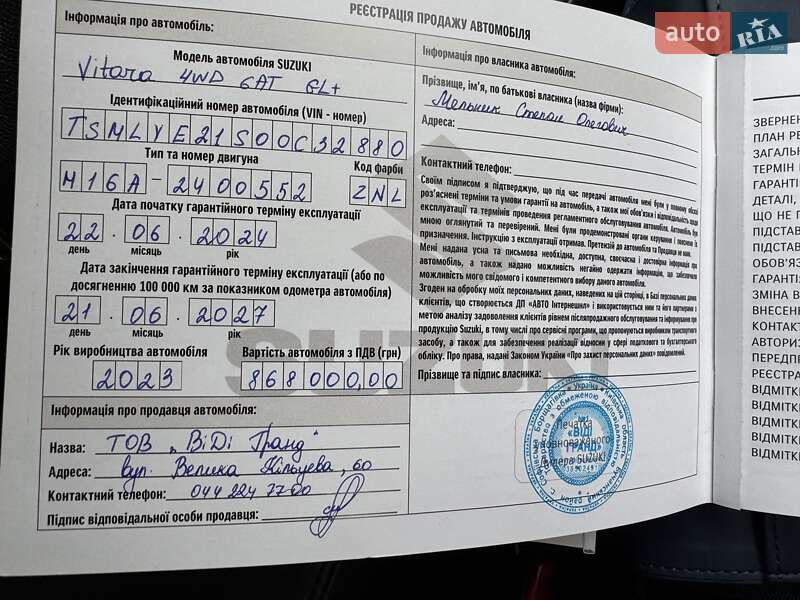 РЕЄСТРАЦІЯ ПРОДАЖУ АВТОМОБІЛЯ
auto RIA
Інформація про автомобіль:
Модель автомобіля SUZUKI
Vitara 4WD 6AT GL+
Ідентифікаційний номер автомобіля (VIN - номер)
TSMLYE21S00C32880
Тип та номер двигуна
Код фарби
M16A-2400552
ZNL
Дата початку гарантійного терміну експлуатації
22.06.2024
день місяць рік
Дата закінчення гарантійного терміну експлуатації (або по
досягненню 100 000 км за показником одометра автомобіля)
21.06.2027
день місяць рік
Рік виробництва автомобіля
Вартість автомобіля з ПДВ (грн)
2023
868000,00
Інформація про продавця автомобіля:
Назва: ТОВ „ВіДі Гранд"
Адреса: вул. Велика Кільцева, 60
Контактний телефон: 044 224 77 00
Підпис відповідальної особи продавця:
SUZUKI
Інформація про власника автомобіля:
Прізвище, ім'я, по батькові власника (назва фірми):
Мельник Степан Олегович
Адреса:
Контактний телефон:
Своїм підписом я підтверджую, що під час передачі автомобіля мені були у повному обсязі
роз'яснені терміни та умови гарантії на автомобіль, а також мої обов'язки і відповідальність щодо
експлуатації та термінів проведення регламентного обслуговування автомобіля. Автомобіль був
мною оглянутий та перевірений. Мені були продемонстровані органи керування і пояснені їх
призначення. Інструкцію з експлуатації отримав. Претензій до автомобіля та Продавця не маю.
Мені надана усна та письмова необхідна, доступна, своєчасна і достовірна інформація про
автомобіль, а також надано можливість негайно одержати інформацію, що забезпечило
можливість мого свідомого і компетентного вибору даного автомобіля.
Згоден на обробку моїх персональних даних, наведених на цій сторінці, в Базі персональних даних
клієнтів, що створюється ДП «АВТО Інтернешнл» і використовується ним та його партнерами з
метою аналізу задоволення клієнтів рівнем післяпродажного обслуговування та інформування про
продукцію Suzuki, в тому числі про сервісні програми, що пропонуються виробником транспортного
засобу, а також для забезпечення реалізації відносин у сфері податкового та бухгалтерського
обліку. Про права, надані Законом України «Про захист персональних даних» повідомлений.
Прізвище та підпис власника:
Печатка
уповноваженого
дилера SUZUKI
«ВІДІ
ГРАНД»
Україна
ЗВЕРНЕН
ПЛАН РЕ
ЗАГАЛЬ
ТЕРМІН
ГАРАНТІ
ДЕТАЛІ,
ЩО НЕ
ПІДСТАВ
ПІДСТАВ
ОБОВ'ЯЗ
ГАРАНТІЯ
ЗМІНА В
ВНЕСЕН
КОНТАКТ
АВТОРИЗ
ПЕРЕДП
РЕЄСТРА
ВІДМІТКИ
ВІДМІТКИ
ВІДМІТК
ВІДМІТК
ВІДМІТК